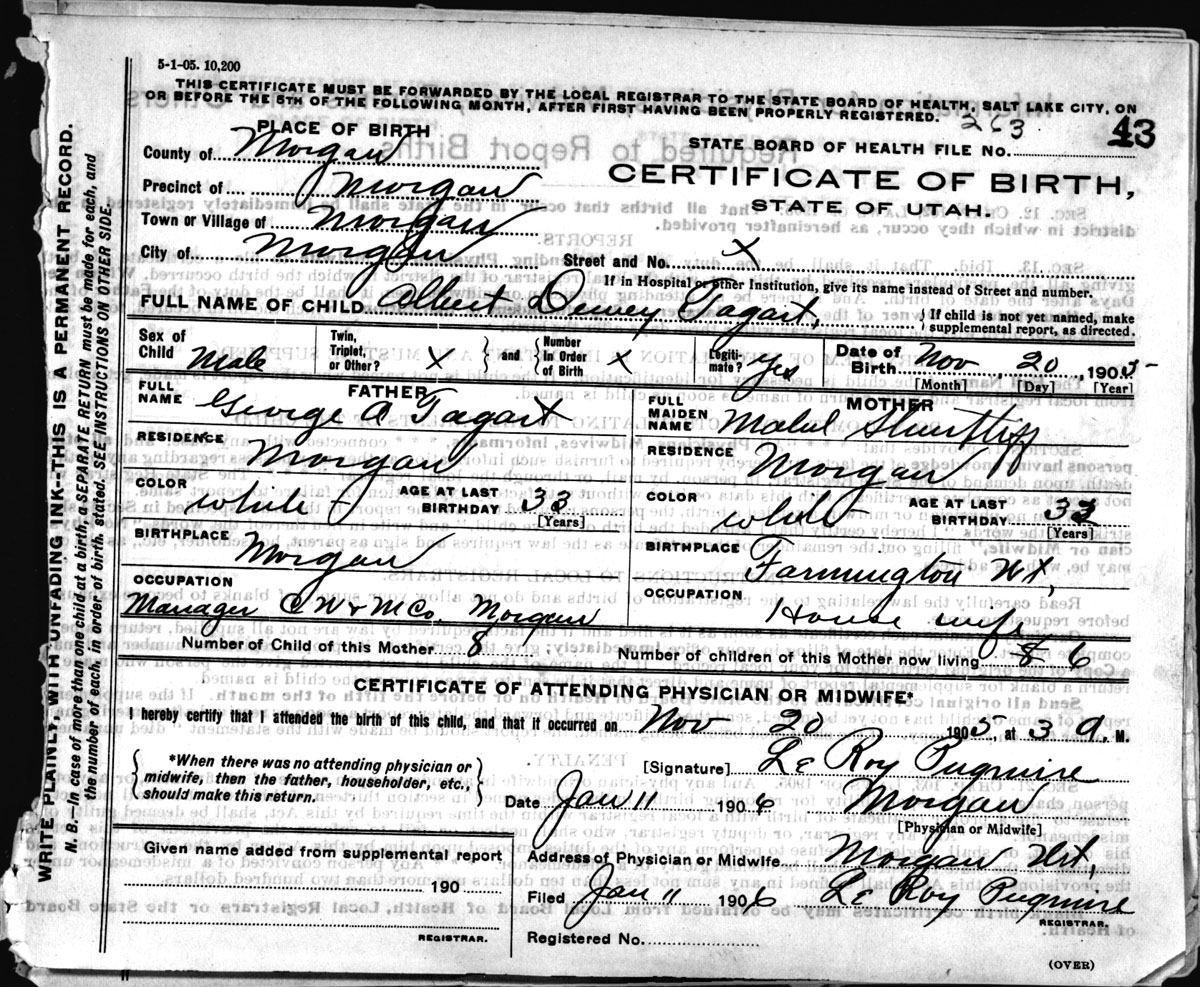 5-1-05. 10,200
THIS CERTIFICATE MUST BE FORWARDED BY THE LOCAL REGISTRAR TO THE STATE BOARD OF HEALTH, SALT LAKE CITY, ON
OR BEFORE THE 5TH OF THE FOLLOWING MONTH, AFTER FIRST HAVING BEEN PROPERLY REGISTERED.
263
43
PLACE OF BIRTH
STATE BOARD OF HEALTH FILE NO.
County of Morgan
CERTIFICATE OF BIRTH,
Precinct of Morgan
STATE OF UTAH.
Town or Village of Morgan
City of Morgan
Street and No. X
If in Hospital or other Institution, give its name instead of Street and number.
FULL NAME OF CHILD Albert Dewey Tagart,
} If child is not yet named, make supplemental report, as directed.
Sex of Child Male
Twin, Triplet, or Other? X
and
Number In Order of Birth X
Legitimate? Yes
Date of Birth Nov 20 1905
[Month] [Day] [Year]
FATHER
FULL NAME George A Tagart
MOTHER
FULL MAIDEN NAME Mabel
RESIDENCE Morgan
RESIDENCE Morgan
COLOR White
AGE AT LAST BIRTHDAY 33
[Years]
COLOR White
AGE AT LAST BIRTHDAY 33
[Years]
BIRTHPLACE Morgan
BIRTHPLACE Farmington Ut,
OCCUPATION
Manager C W & M Co. Morgan
OCCUPATION House wife
Number of Child of this Mother 8
Number of children of this Mother now living 8 6
CERTIFICATE OF ATTENDING PHYSICIAN OR MIDWIFE*
I hereby certify that I attended the birth of this child, and that it occurred on Nov 20 1905, at 3 a. M.
*When there was no attending physician or
midwife, then the father, householder, etc.,
should make this return.
[Signature] Le Roy Pugmire
Date Jan 11 1906 Morgan
[Physician or Midwife]
Given name added from supplemental report
190
REGISTRAR.
Address of Physician or Midwife Morgan Ut,
Filed Jan 11 1906 Le Roy Pugmire
REGISTRAR.
Registered No.
(OVER)
WRITE PLAINLY, WITH UNFADING INK--THIS IS A PERMANENT RECORD.
N. B.--In case of more than one child at a birth, a SEPARATE RETURN must be made for each, and
the number of each, in order of birth, stated. SEE INSTRUCTIONS ON OTHER SIDE.